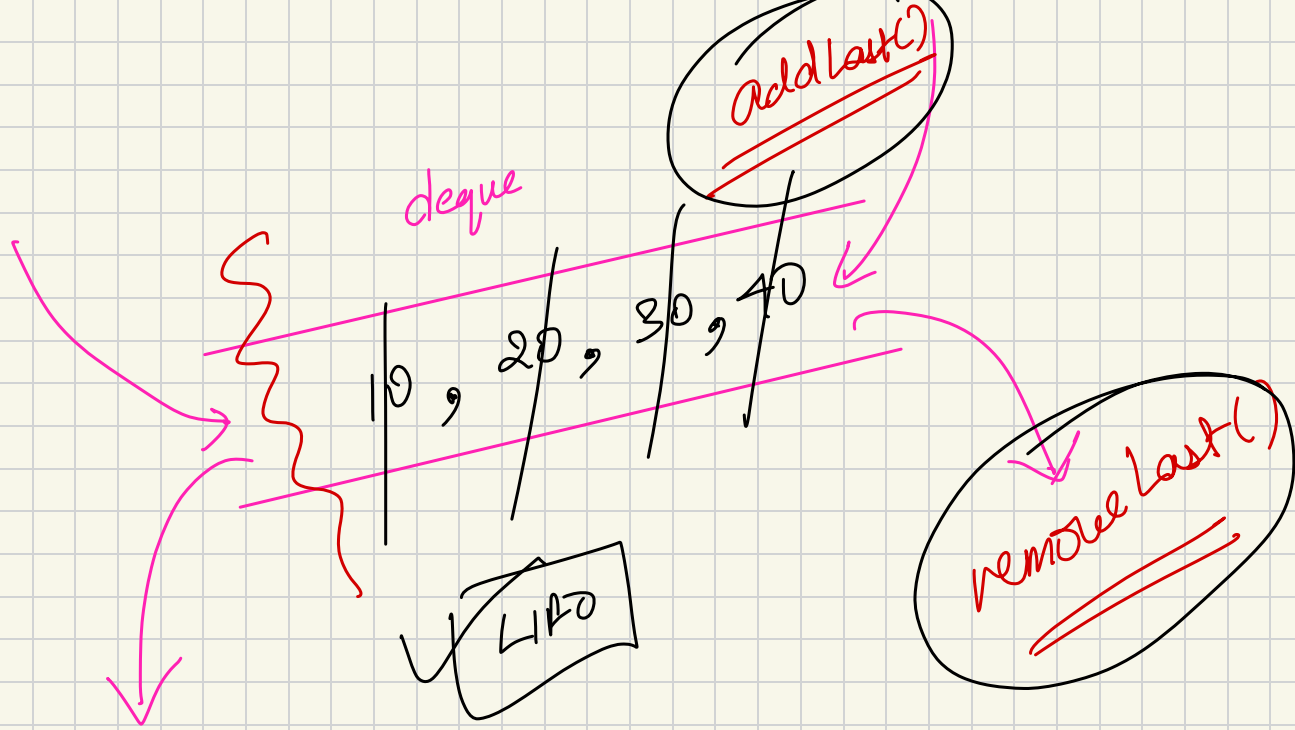 addLast()
deque
10, 20, 30, 40
removeLast()
LIFO